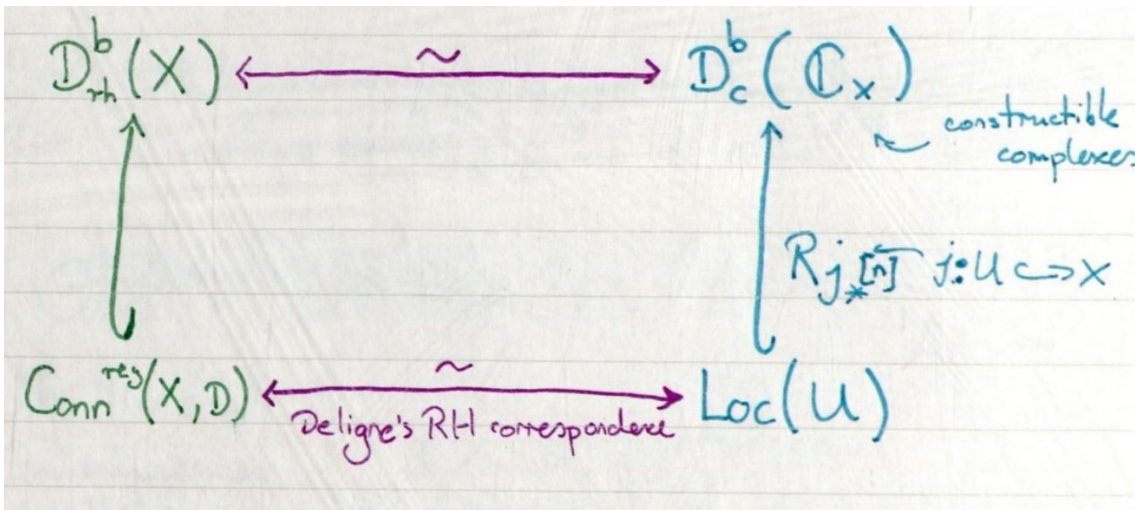 D^b_rh(X) ∼ D^b_c(ℂ_X)
constructible
complexes
Rj_*[n] j: U ↪ X
Conn^reg(X, D) ∼ Loc(U)
Deligne's RH correspondence